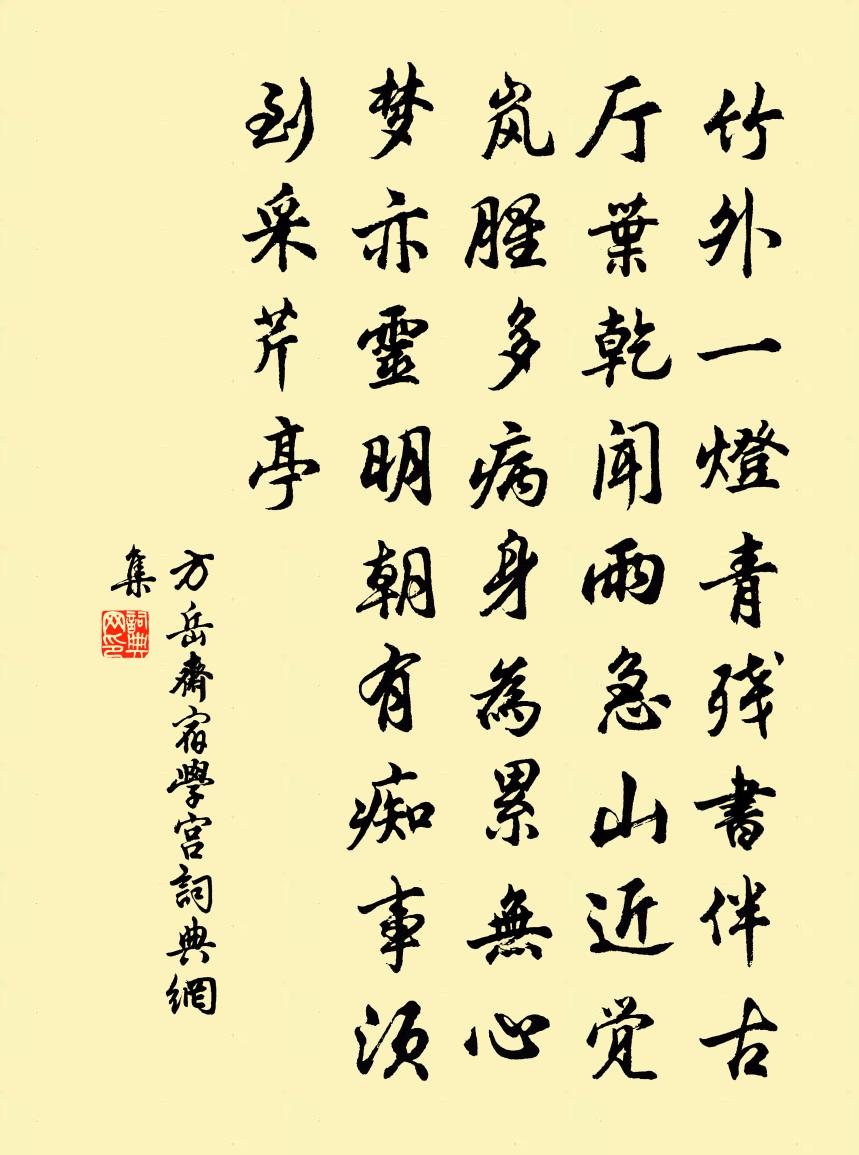 竹外一燈青残書伴古
厅葉乾闻雨急山近觉
岚腥多病身為累無心
梦亦靈明朝有痴事须
到采芹亭
方岳齋宿學宫詞典網
集
詞典
网印